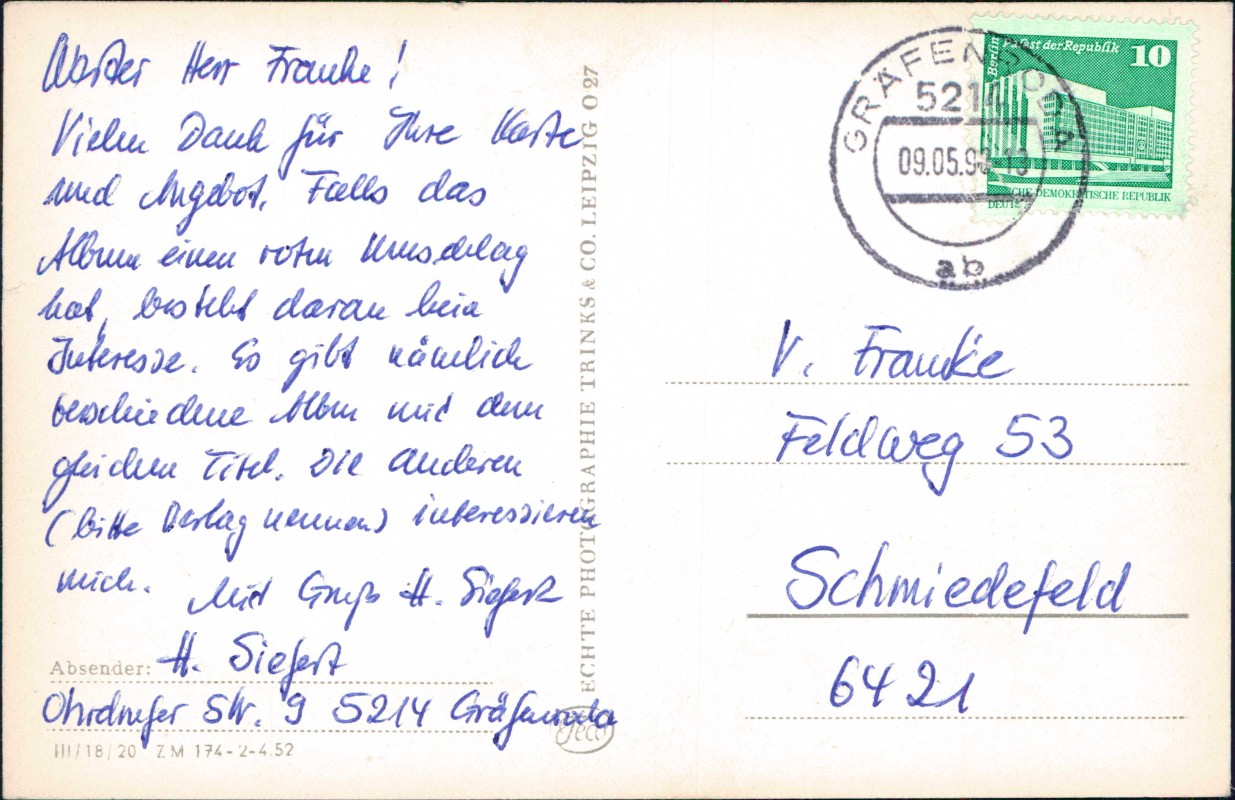 Werter Herr Franke!
Vielen Dank für Ihre Karte
und Angebot. Falls das
Album einen roten Umschlag
hat, besteht daran kein
Interesse. Es gibt nämlich
verschiedene Alben mit dem
gleichen Titel. Die anderen
(bitte Verlag nennen) interessieren
mich. Mit Gruß H. Siegert
Absender: H. Siegert
Ohrdrufer Str. 9 5214 Gräfenroda
III/18/20 ZM 174-2-4.52
ECHTE PHOTOGRAPHIE TRINKS & CO. LEIPZIG O 27
GRÄFENRODA
5214
09.05.90-18
ab
Berlin Palast der Republik 10
DEUTSCHE DEMOKRATISCHE REPUBLIK
V. Franke
Feldweg 53
Schmiedefeld
6421